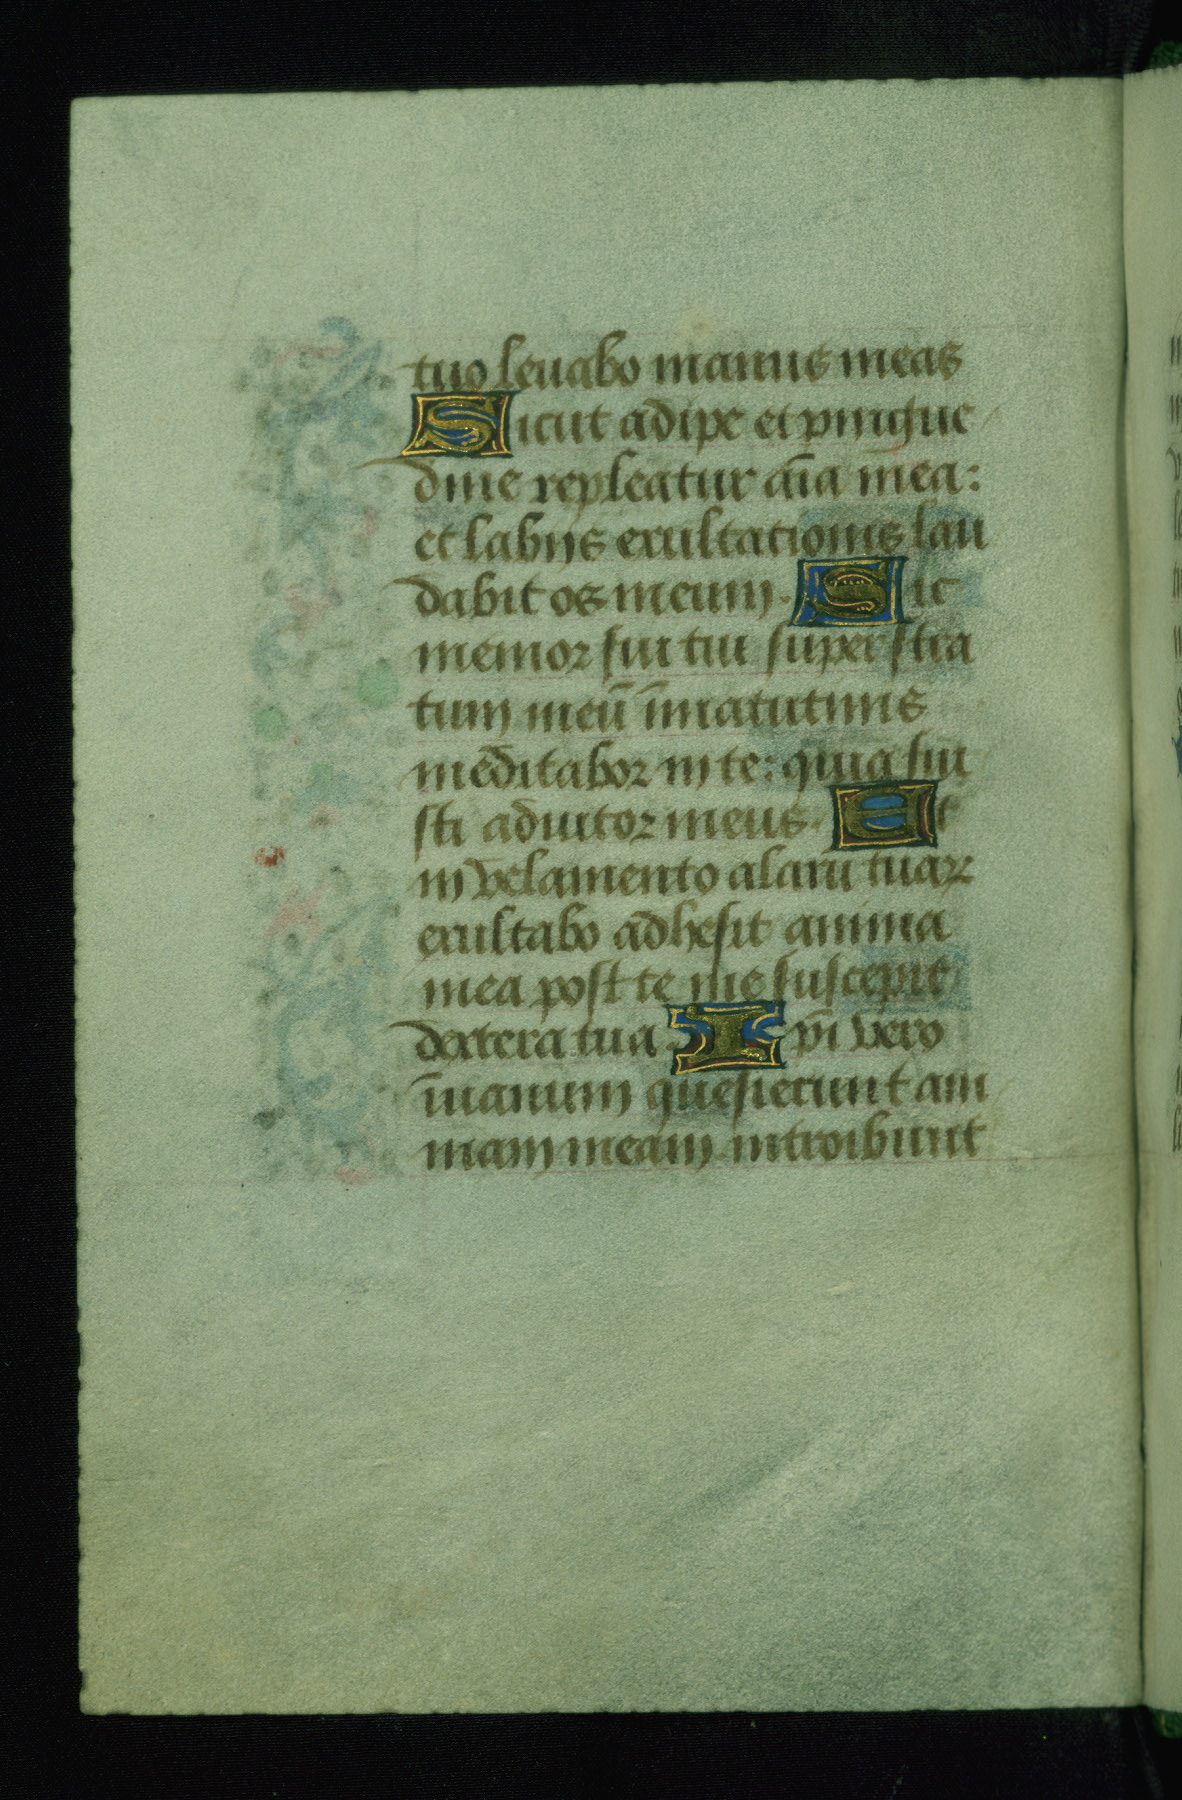 tuo leuabo manus meas
Sicut adipe et pingue
dine repleatur aīa mea:
et labijs exultationis lau
dabit os meum. Sic
memor fui tui super stra
tum meū ī matutinis
meditabor in te: quia fui
sti adiutor meus. Et
in velamento alarū tuaꝝ
exultabo adhesit anima
mea post te me suscepit
dextera tua. Ipi vero
ī uanum quesierunt ani
mam meam introibunt